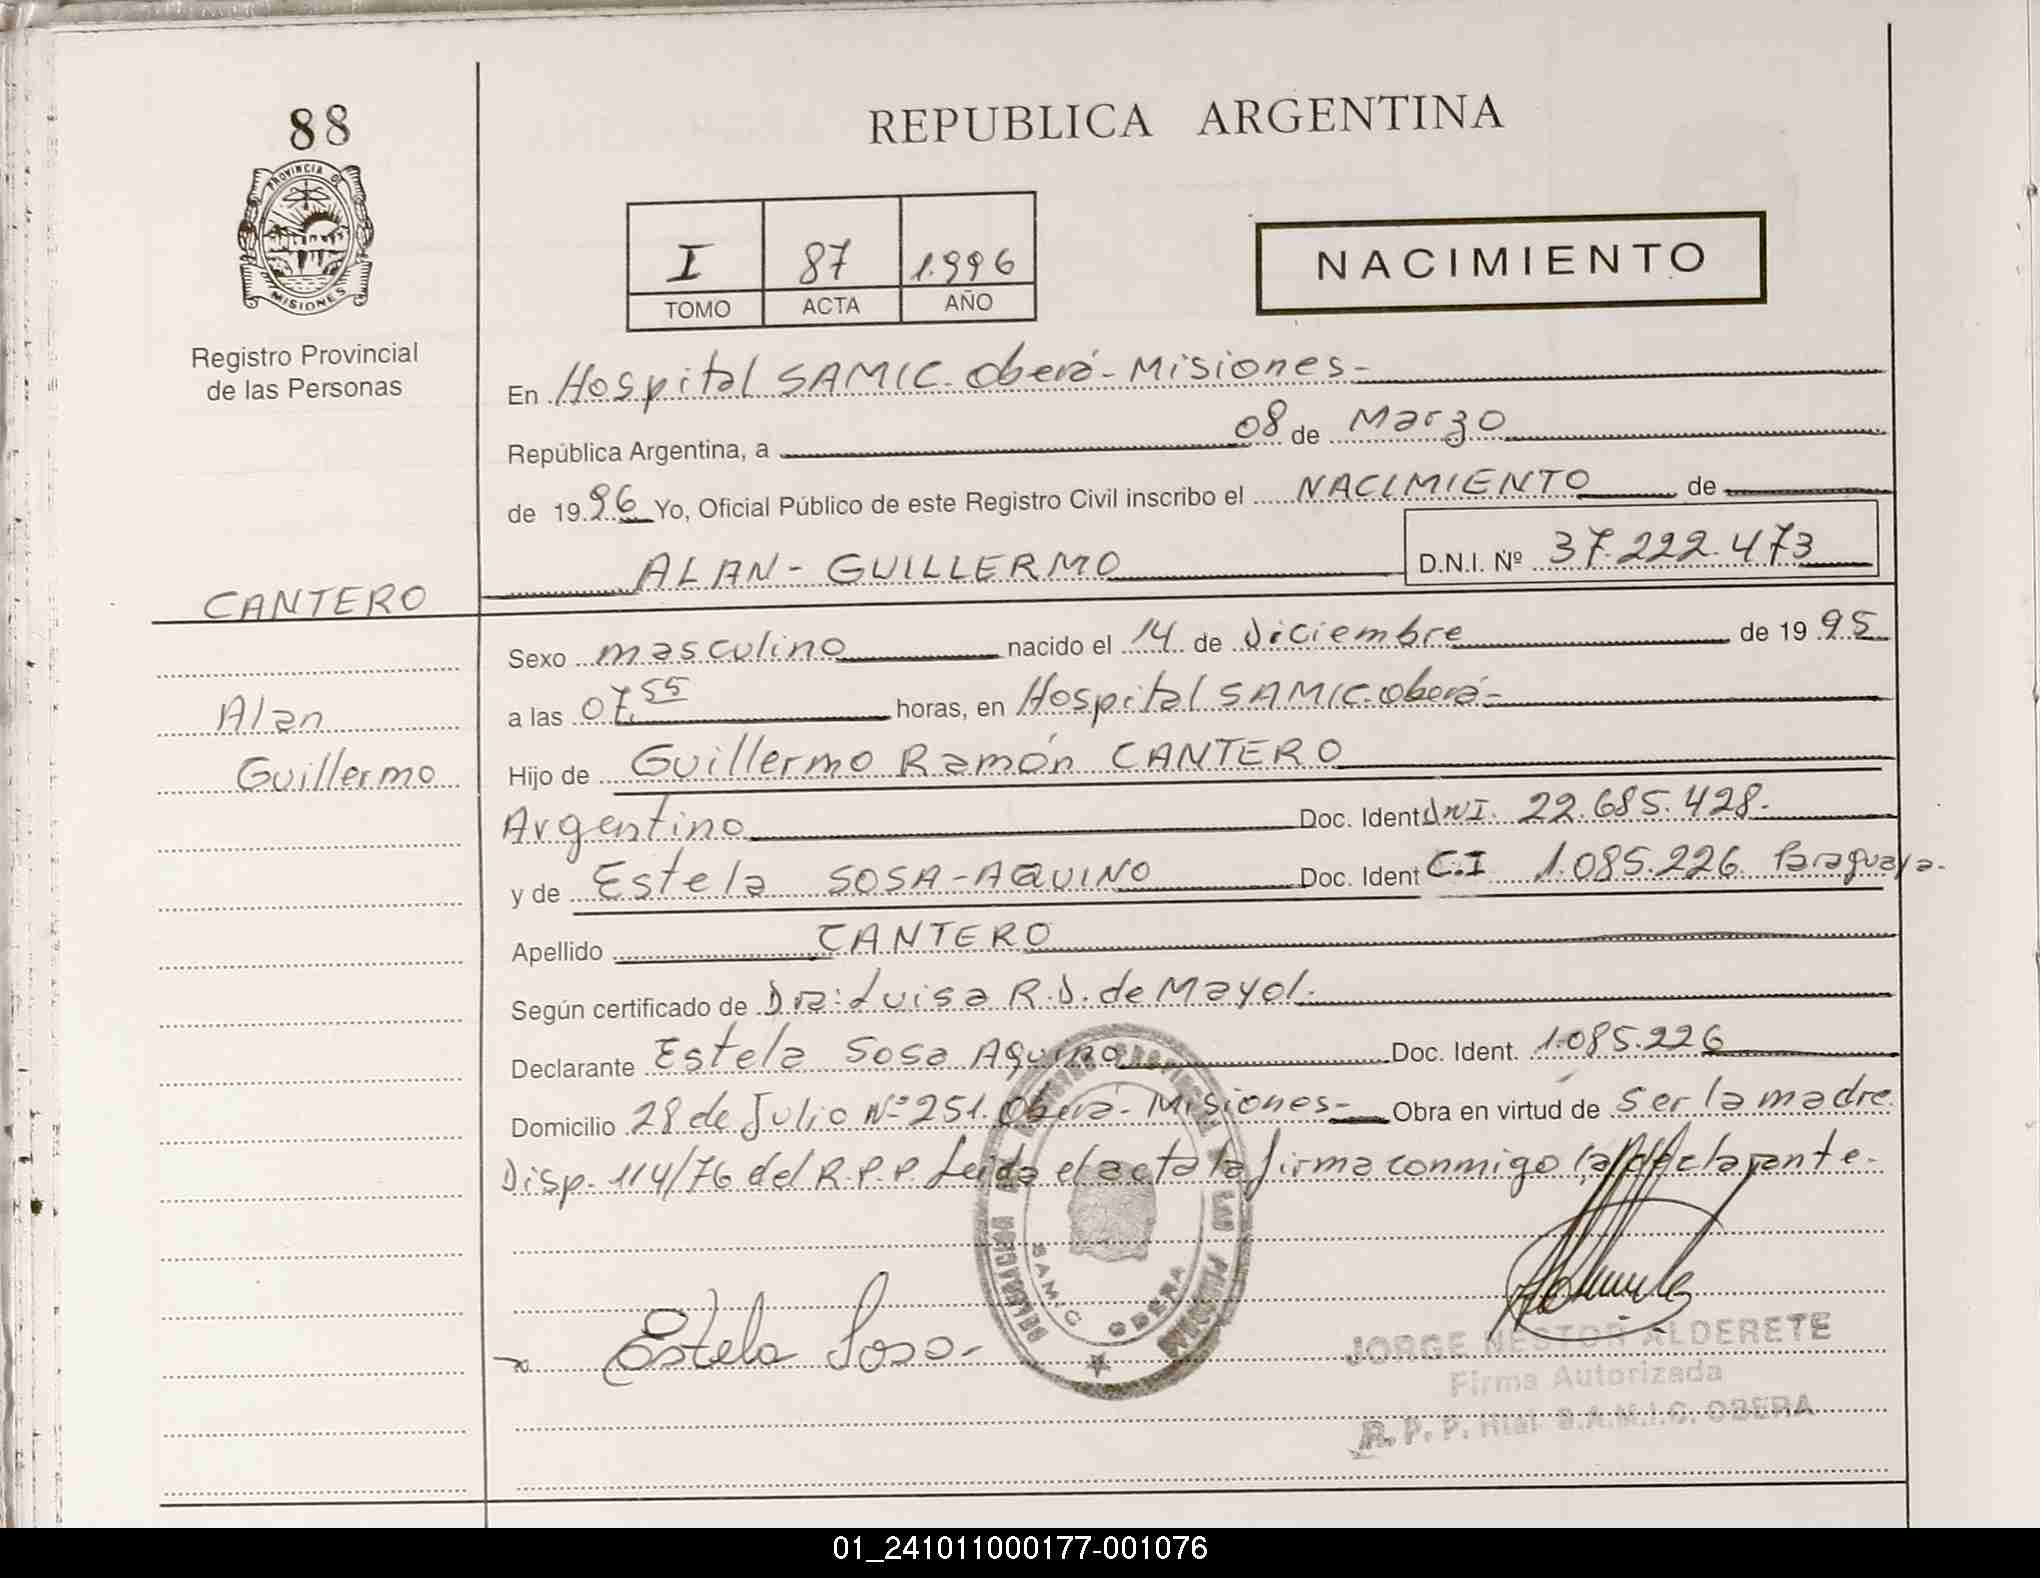 88
PROVINCIA D
MISIONES
Registro Provincial
de las Personas
CANTERO
Alan
Guillermo
REPUBLICA ARGENTINA
I 87 1.996
TOMO ACTA AÑO
NACIMIENTO
En Hospital SAMIC. Oberá - Misiones -
República Argentina, a 08 de Marzo
de 1996 Yo, Oficial Público de este Registro Civil inscribo el NACIMIENTO de
ALAN - GUILLERMO D.N.I. Nº 37.222.473
Sexo masculino nacido el 14 de Diciembre de 1995
a las 07,55 horas, en Hospital SAMIC. Oberá -
Hijo de Guillermo Ramón CANTERO
Argentino Doc. Ident DNI. 22.685.428.
y de Estela SOSA - AQUINO Doc. Ident C.I 1.085.226 Paraguaya.
Apellido CANTERO
Según certificado de Dra: Luisa R.D. de Mayol.
Declarante Estela Sosa Aquino Doc. Ident. 1.085.226
Domicilio 28 de Julio Nº 251. Oberá - Misiones - Obra en virtud de ser la madre
Disp. 114/76 del R.P.P. Leida el acta la firma conmigo la declarante.
Estela Sosa.
SAMIC OBERA
JORGE NESTOR ALDERETE
Firma Autorizada
R. P. P. Htal S.A.M.I.C. OBERA
01_241011000177-001076